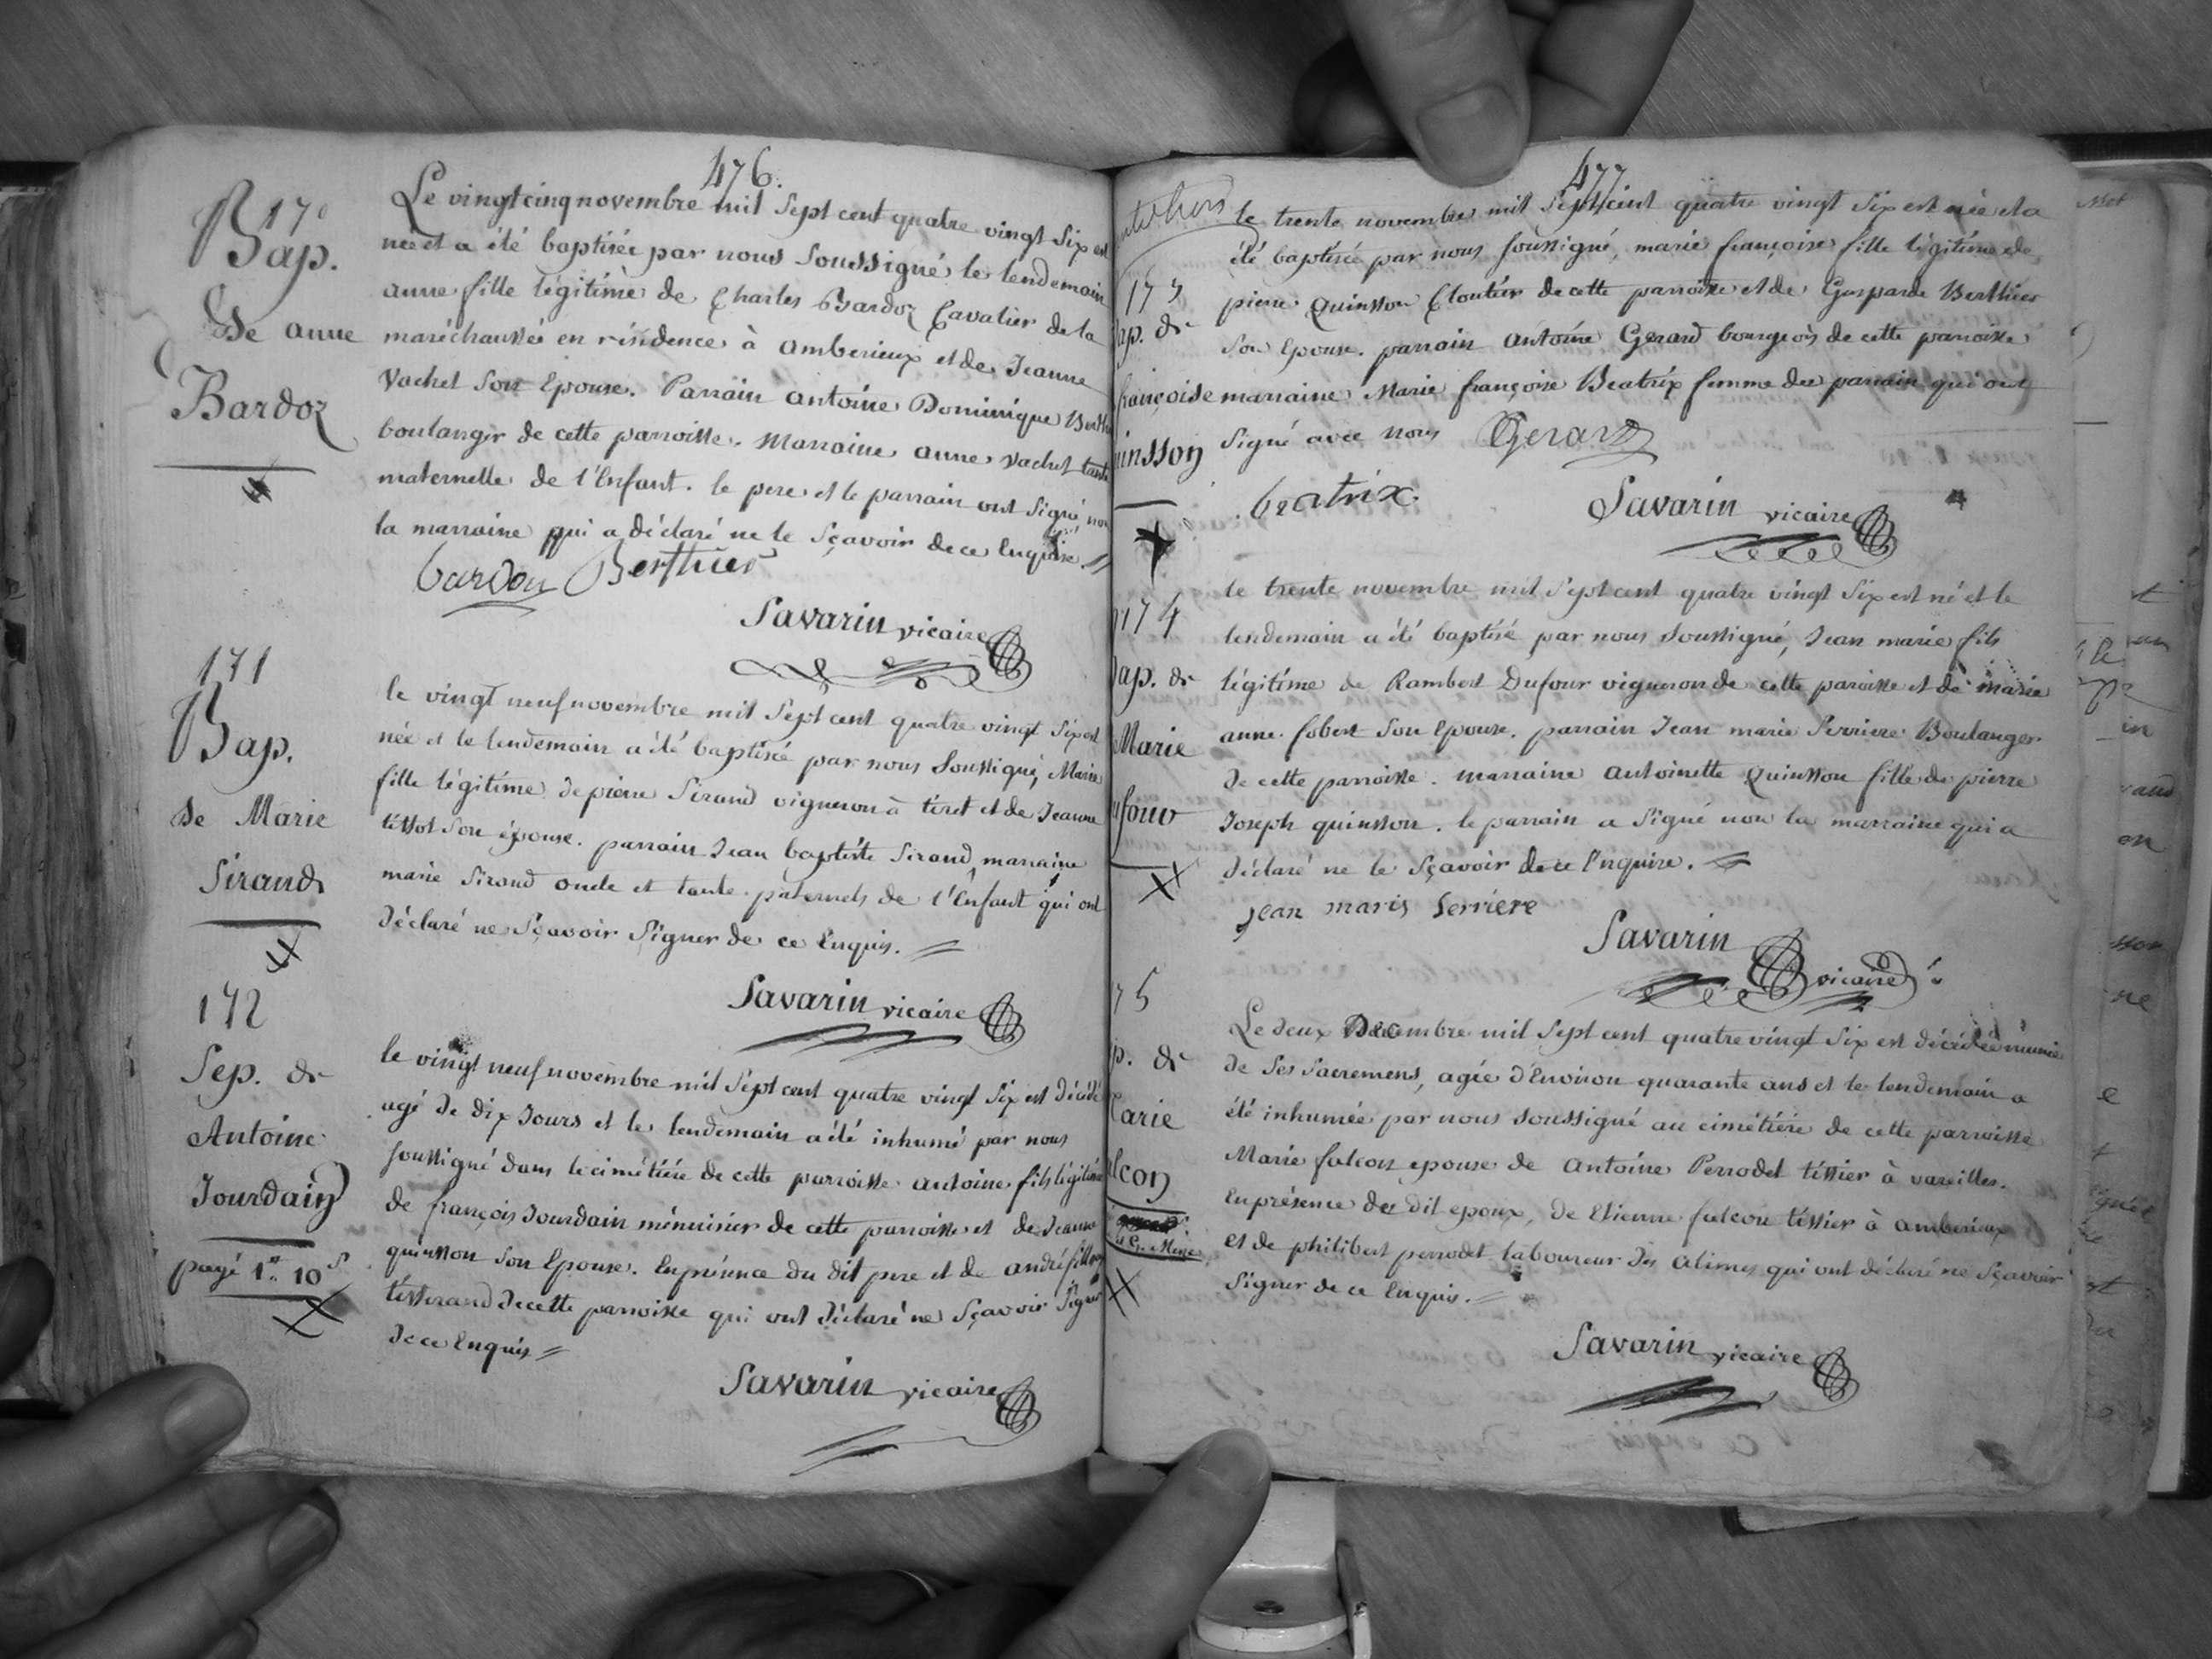 476.
170
Bap.
de anne
Bardoz
Le vingt cinq novembre mil sept cent quatre vingt six est
née et a été baptisée par nous soussigné le lendemain
anne fille légitime de Charles Bardoz Cavalier de la
maréchaussée en résidence à amberieux et de Jeanne
Vachet son Epouse. Parrain antoine Dominique
boulanger de cette parroisse. Marraine anne Vachet tante
maternelle de l'Enfant. le pere et le parrain ont signé non
la marraine qui a déclaré ne le sçavoir de ce Enquise. =
bardou Berthier
Savarin vicaire
171
Bap.
de Marie
Sirand
le vingt neuf novembre mil sept cent quatre vingt six est
née et le lendemain a été baptisée par nous soussigné, Marie
fille légitime de pierre Sirand vigneron à tiret et de Jeanne
tissot son épouse. parrain Jean baptiste Sirand, marraine
marie Sirand oncle et tante paternels de l'Enfant qui ont
déclaré ne sçavoir signer de ce Enquis. =
Savarin vicaire
172
Sep. de
Antoine
Jourdain
payé 1ᵗᵗ 10ˢ
le vingt neuf novembre mil sept cent quatre vingt six est décédé
agé de dix Jours et le lendemain a été inhumé par nous
soussigné dans le cimétiére de cette parroisse antoine fils légitime
de françois Jourdain ménuisier de cette parroisse et de Jeanne
quinsson son Epouse. En présence du dit pere et de andré
tisserand de cette parroisse qui ont déclaré ne sçavoir signer
de ce Enquis =
Savarin vicaire
477
173
ap. de
françoise
uinsson
le trente novembre mil sept cent quatre vingt six est née et a
été baptisée par nous soussigné, marie françoise fille légitime de
pierre Quinsson Cloutier de cette parroisse et de Gasparde Berthier
son Epouse. parrain antoine Gerard bourgeois de cette parroisse
marraine Marie françoise Beatrix femme du parrain qui ont
signé avec nous Gerard
beatrix.
Savarin vicaire
174
ap. de
Marie
ufour
le trente novembre mil sept cent quatre vingt six est né et le
lendemain a été baptisé par nous soussigné, Jean marie fils
légitime de Rambert Dufour vigneron de cette paroisse et de marie
anne fobert son Epouse. parrain Jean marie Serriere Boulanger
de cette parroisse. marraine antoinette Quinsson fille de pierre
Joseph quinsson. le parrain a signé non la marraine qui a
déclaré ne le sçavoir de ce Enquise. =
jean marie serriere
Savarin
vicaire
75
p. de
arie
lcon
Le deux Décembre mil sept cent quatre vingt six est décédée munie
de ses sacremens, agée d'Environ quarante ans et le lendemain a
été inhumée par nous soussigné au cimétiére de cette parroisse
Marie falcon epouse de antoine Perrodet tissier à vareilles.
En présence du dit epoux, de Etienne falcon tissier à amberieux
et de philibert perrodet laboureur des alimes qui ont déclaré ne sçavoir
signer de ce Enquis. =
Savarin vicaire